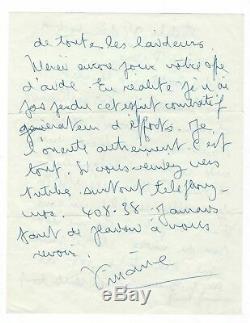 de toutes les laideurs
Merci encore pour votre offre
d'aide. En réalité je n'ai
pas perdu cet esprit combatif
générateur d'efforts. Je
l'oriente autrement c'est
tout. Si vous venez vers
surtout téléphonez
moi. 408.38 J'aurais
tant de plaisir à vous
revoir.